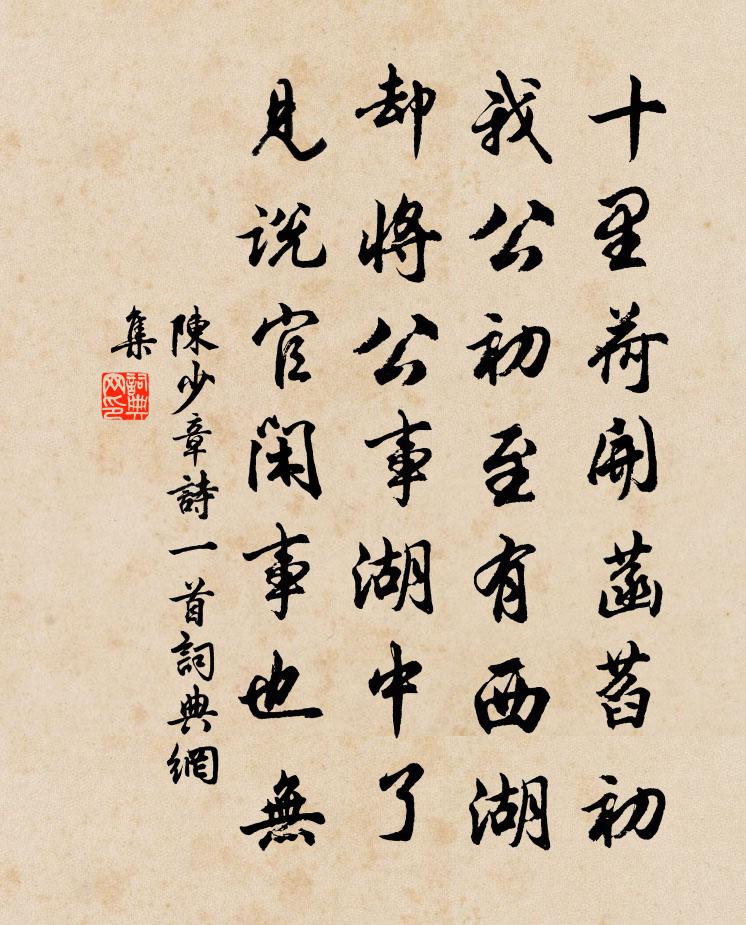 十里荷開菡萏初
我公初至有西湖
却將公事湖中了
見説官閑事也無
陳少章詩一首詞典網
集
詞典网印